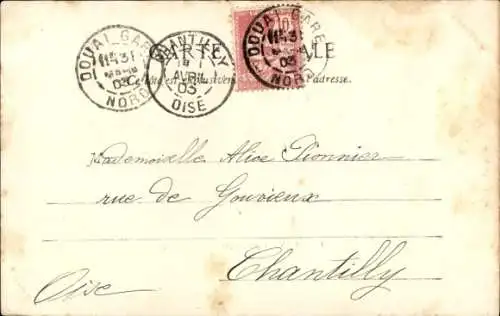 DOUAI-GARE
11 45 31
MARS
03
NORD
CHANTILLY
1
AVRIL
03
OISE
10
DOUAI-GARE
11 45 31
03
NORD
CARTE LE
Ce côté est exclusivement adresse.
Mademoiselle Alice Pionnier
rue de Gouvieux
Chantilly
Oise